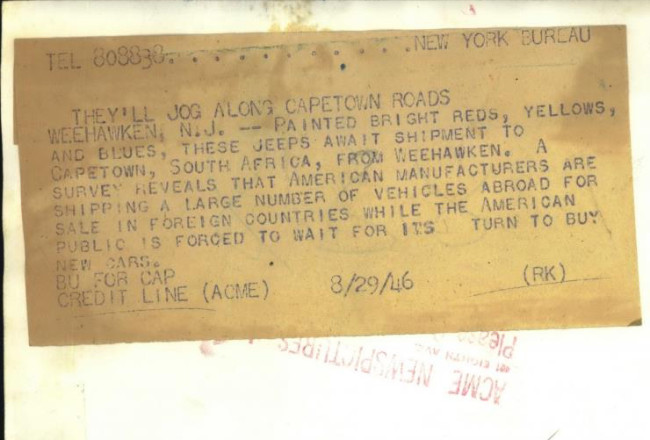 TEL 808838. . . . . . . . . . . .NEW YORK BUREAU
THEY'LL JOG ALONG CAPETOWN ROADS
WEEHAWKEN, N.J. -- PAINTED BRIGHT REDS, YELLOWS,
AND BLUES, THESE JEEPS AWAIT SHIPMENT TO
CAPETOWN, SOUTH AFRICA, FROM WEEHAWKEN. A
SURVEY REVEALS THAT AMERICAN MANUFACTURERS ARE
SHIPPING A LARGE NUMBER OF VEHICLES ABROAD FOR
SALE IN FOREIGN COUNTRIES WHILE THE AMERICAN
PUBLIC IS FORCED TO WAIT FOR ITS TURN TO BUY
NEW CARS.
BU FOR CAP
CREDIT LINE (ACME) 8/29/46 (RK)
Please
EIGHTH AVE.
ACME NEWSPICTURES